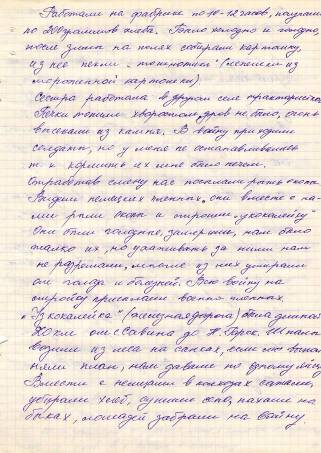 Работали на фабрике по 10-12 часов, получали
по 500 граммов хлеба. Было холодно и голодно,
после зимы на полях собирали картошку,
из нее пекли "тошнотики" (лепешки из
мороженной картошки)
Сестра работала в другом селе трактористкой.
Печки топили хворостом, дров не было, огонь
высекали из камня. В войну приходили
солдаты, но у меня не останавливались
т.к. кормить их мне было нечем.
Отработав смену нас посылали рыть окопы
Видели немецких пленных, они вместе с на-
ми рыли окопы и строили "кукалейку"
Они были голодные, замерзшие, нам было
жалко их, но ухаживать за ними нам
не разрешали, многие из них умирали
от голода и болезней. Всю войну на
стройку присылали военно-пленных.
"Узкокалейка" (железная дорога) была длиной
км от с. Савина до Н. Горок. Шпалы
возили из леса на санках, если мы выпол-
няли план, нам давали по
Вместе с немцами в колхозах сажали,
убирали хлеб, сушили сено, пахали на
быках, лошадей забрали на войну.